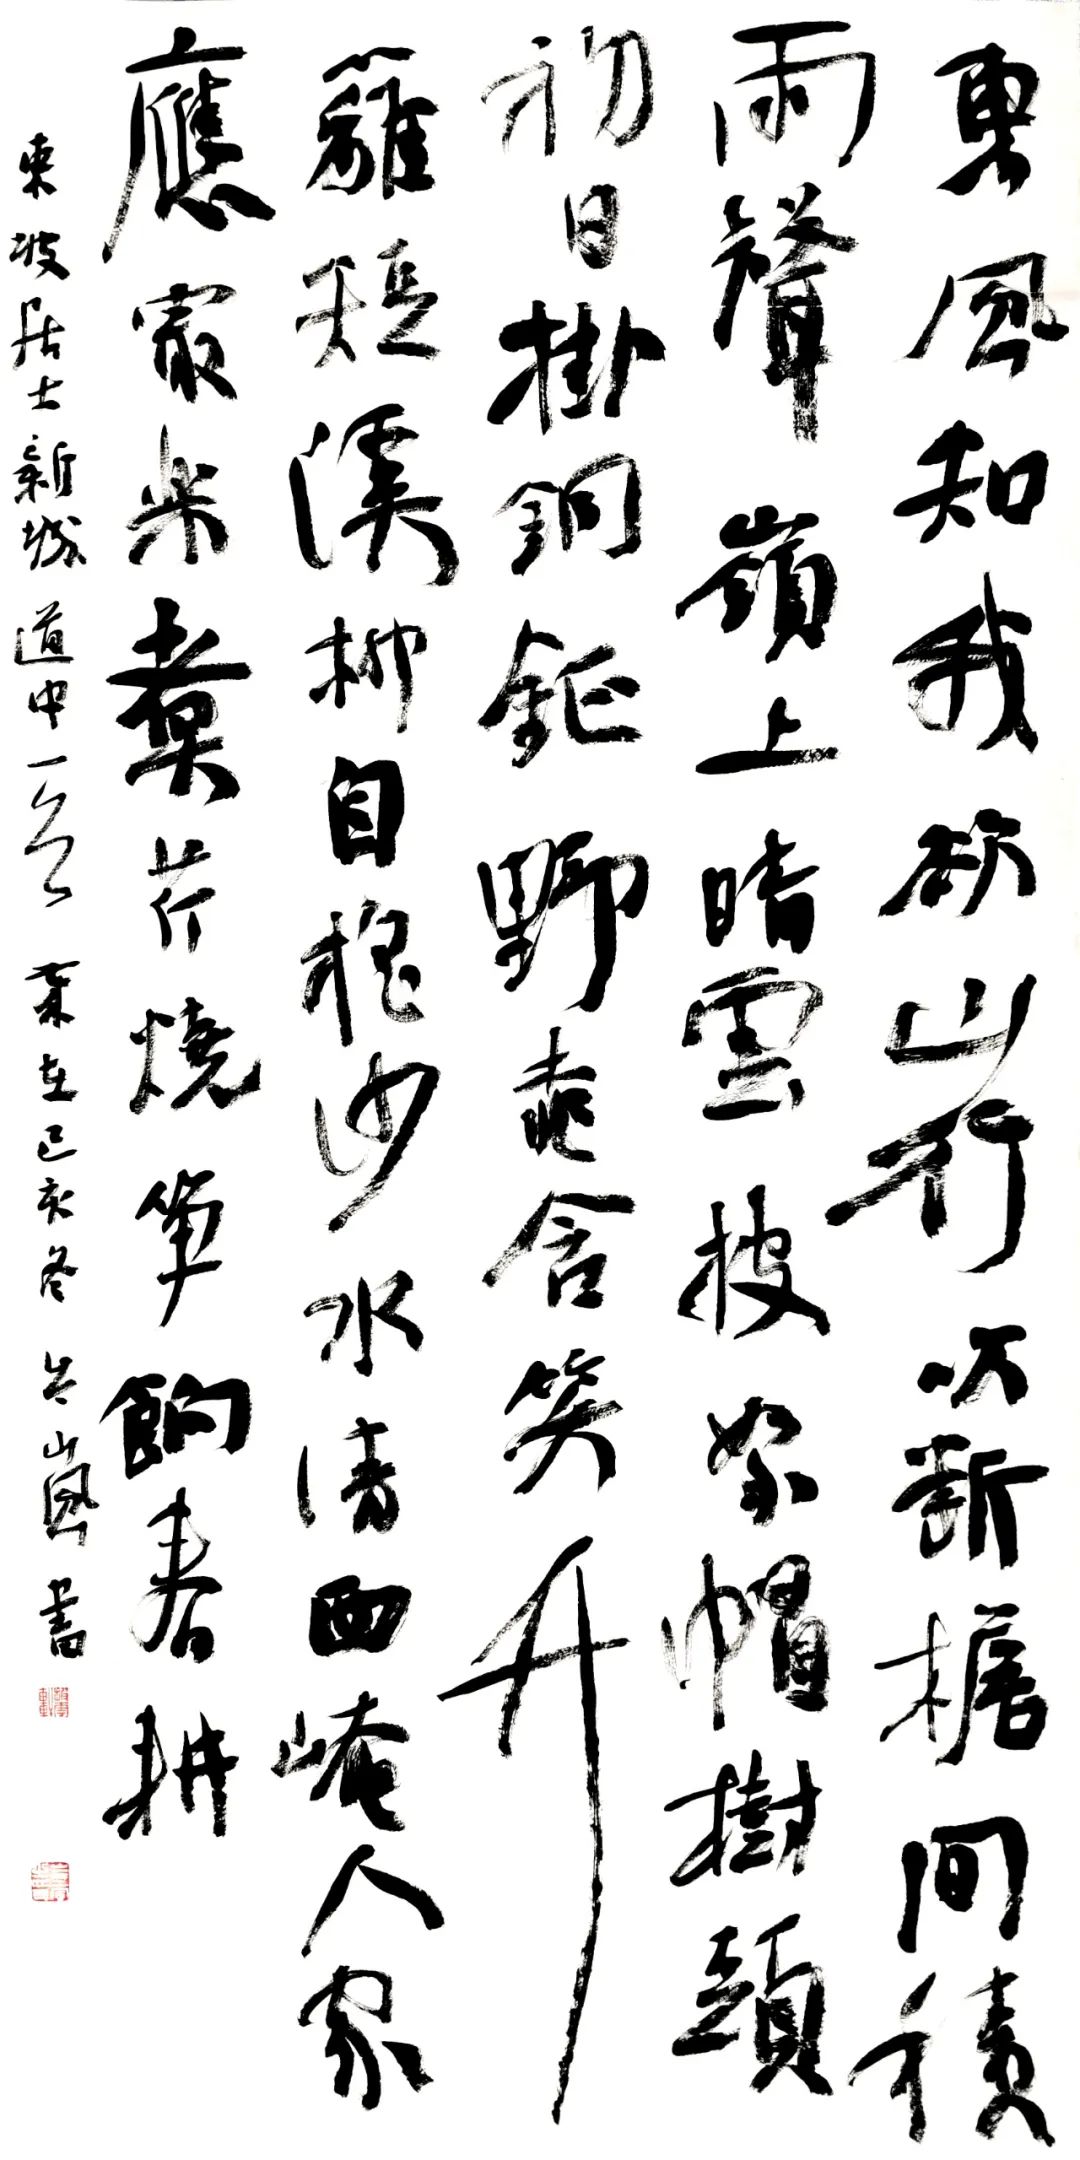 東風知我欲山行吹斷檐間積
雨聲嶺上晴雲披絮帽樹頭
初日掛銅鉦野桃含笑竹
籬短溪柳自搖沙水清西崦人家
應最樂煮芹燒筍餉春耕
東坡居士新城道中一首 歲在己亥冬 嵐書